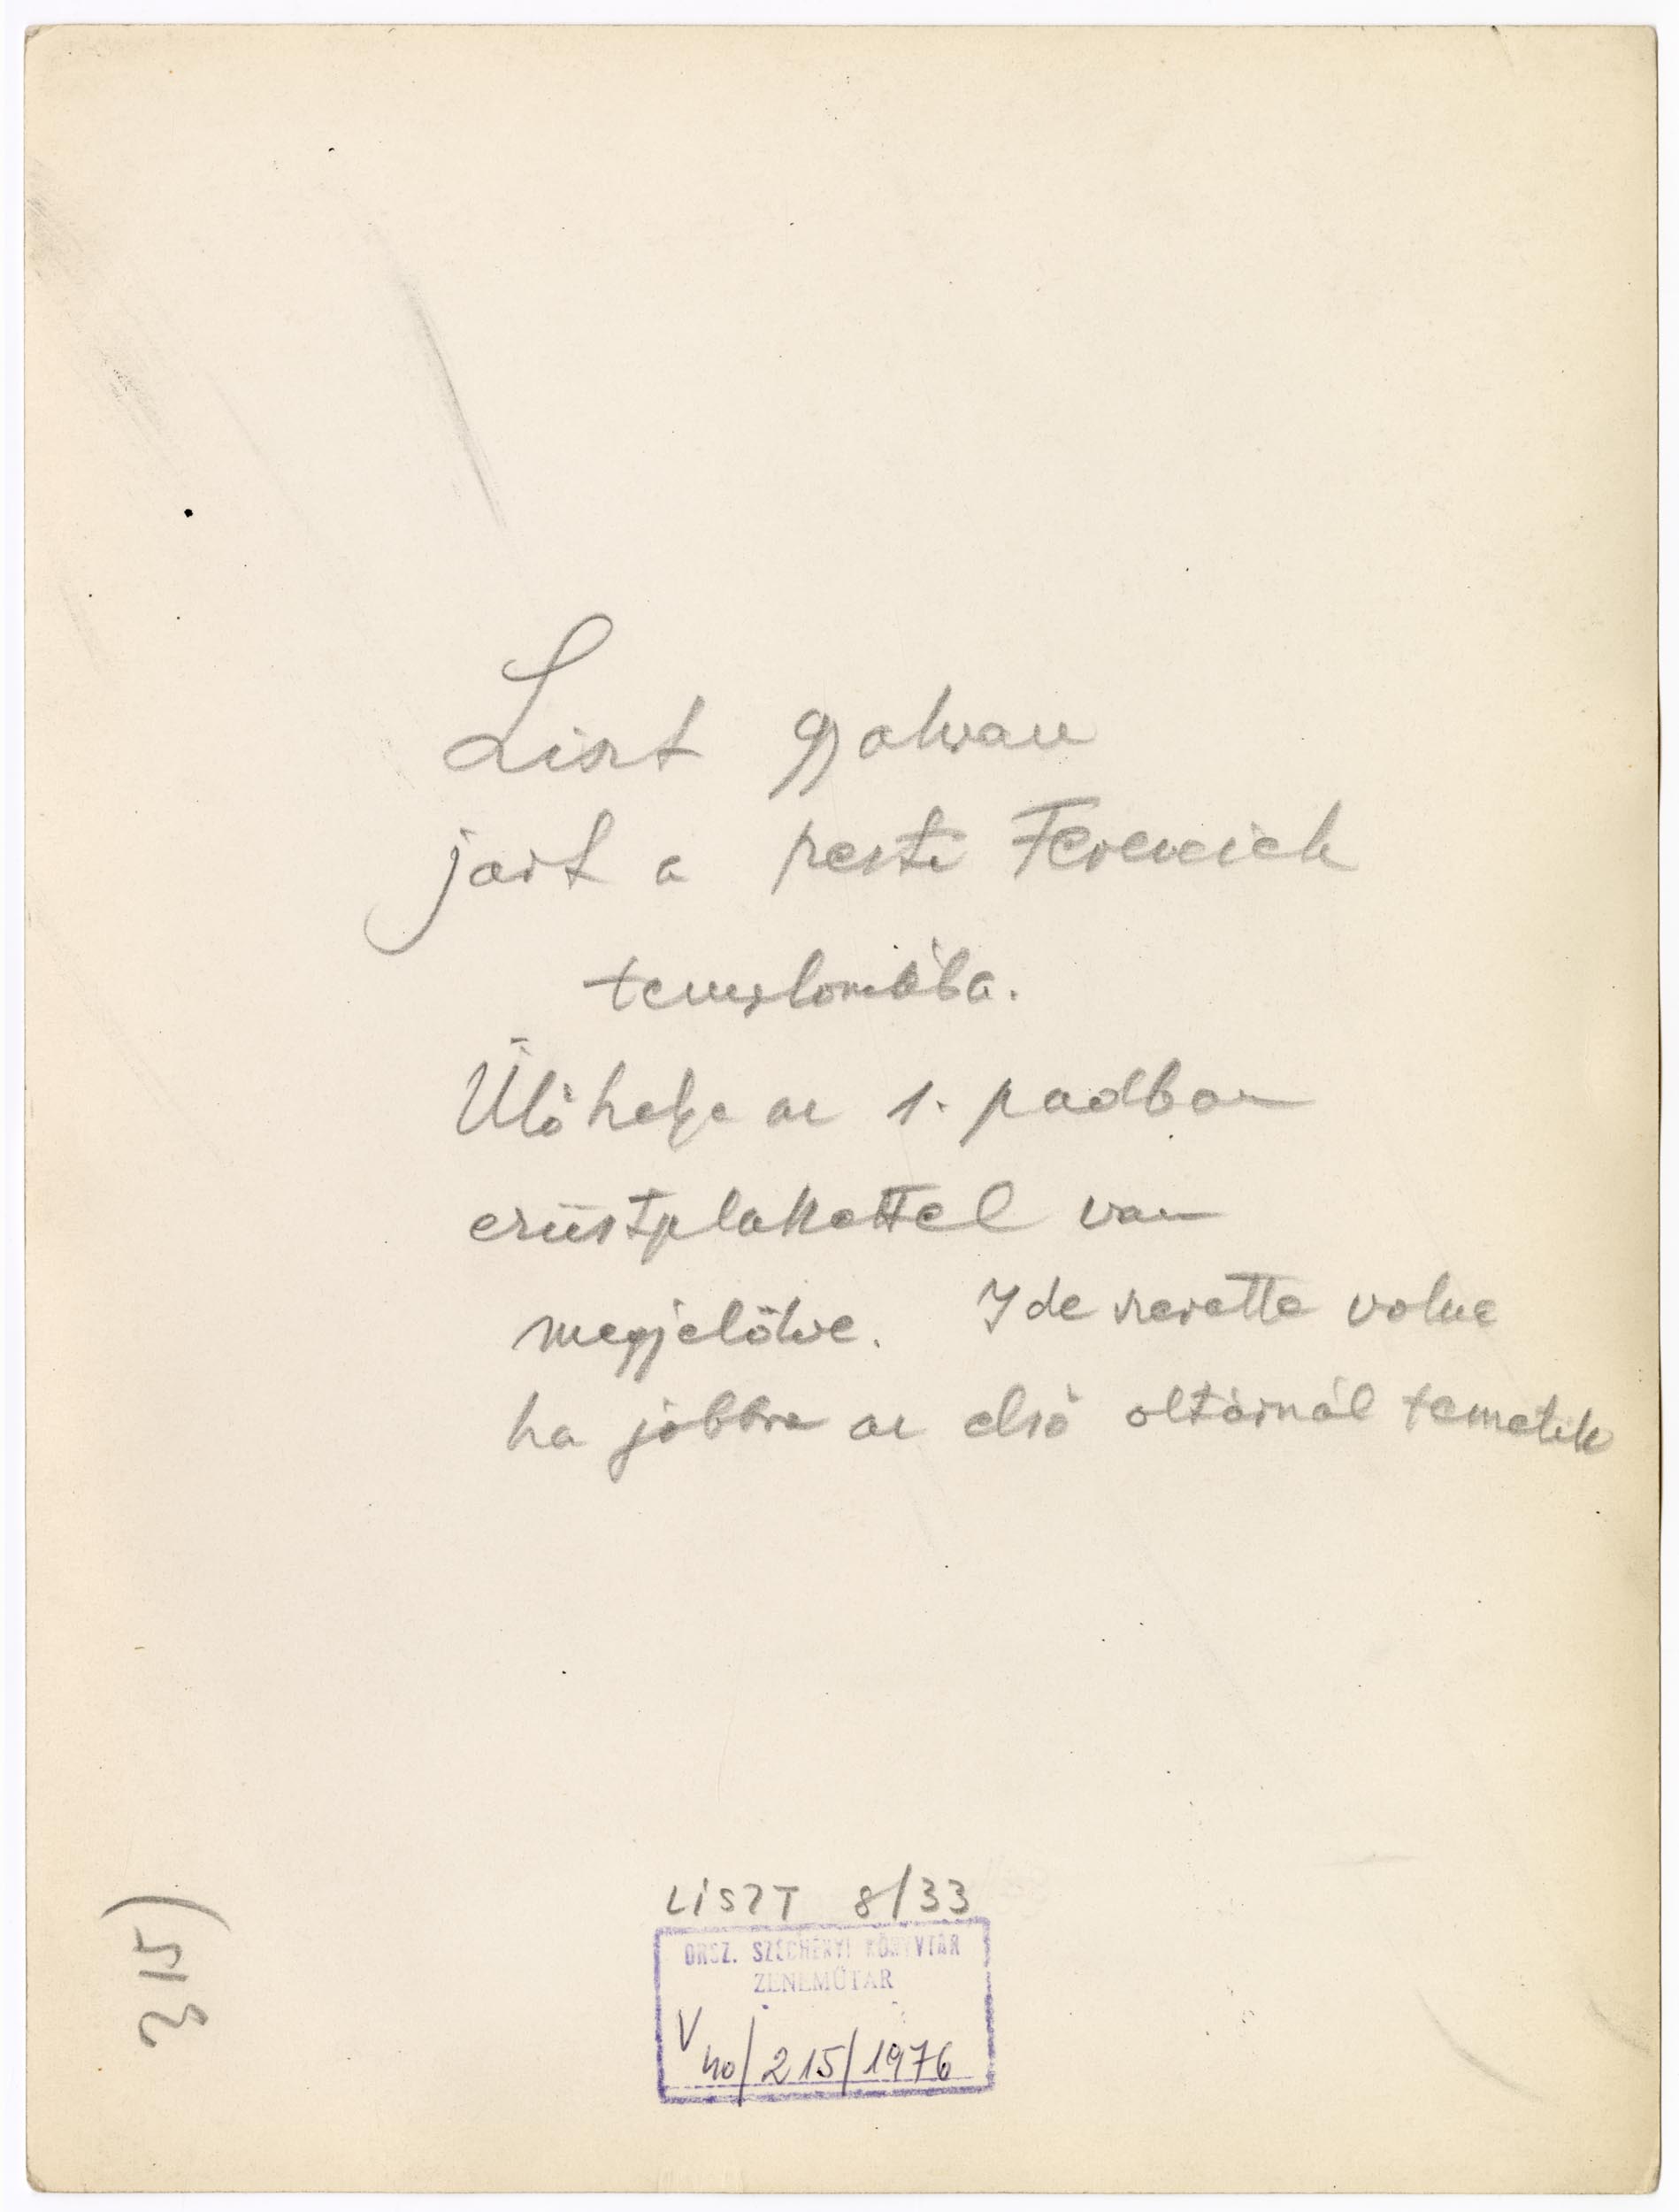 Liszt gyakran
járt a pesti Ferenciek
templomába.
Ülőhelye az 1. padban
ezüstplakettel van
megjelölve. Ide szerette volna
ha jobbra az első oltárnál temetik
LISZT 8/33
ORSZ. SZÉCHÉNYI KÖNYVTÁR
ZENEMŰTÁR
V
40/215/1976
315)